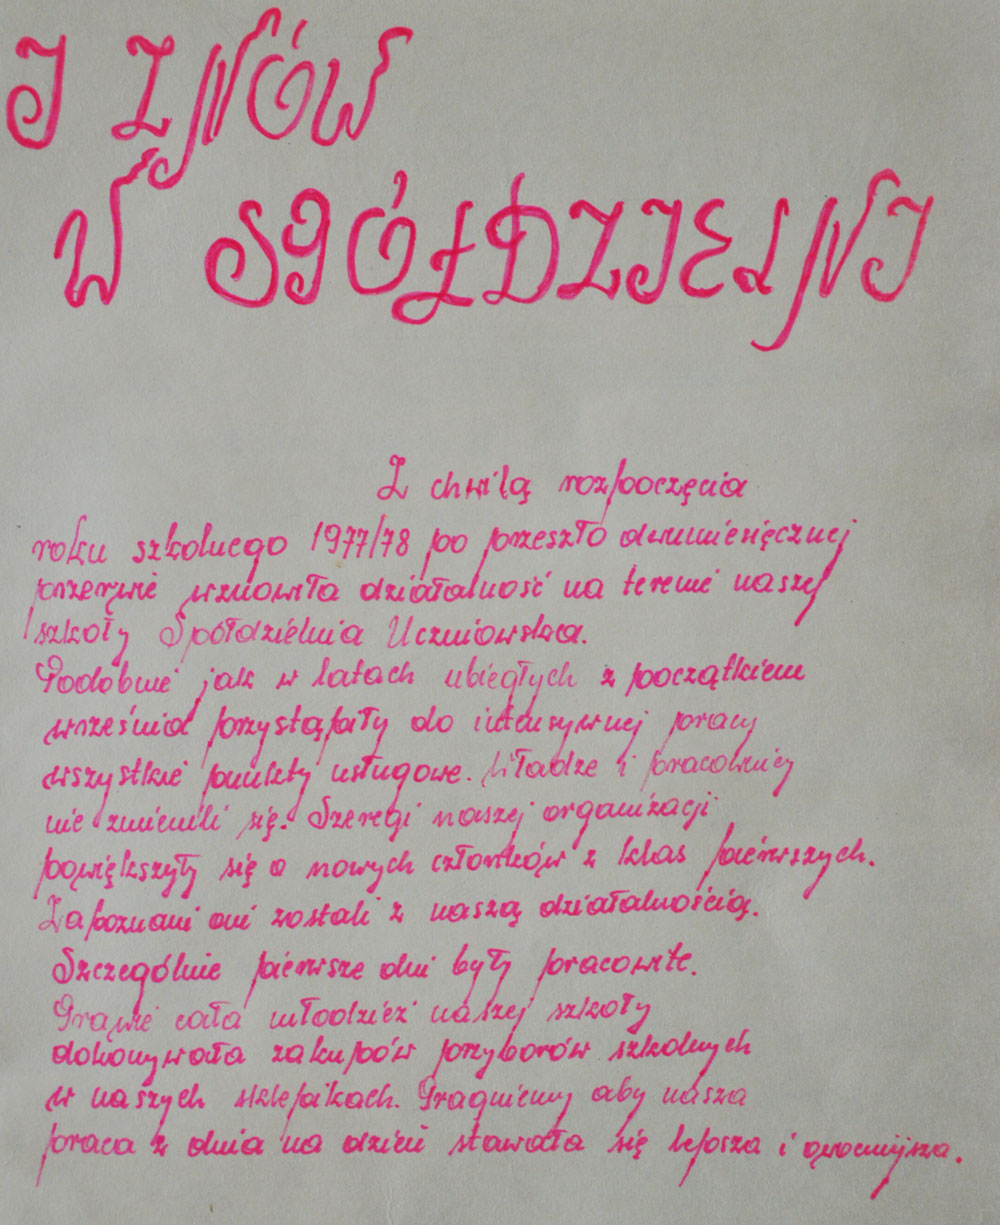 I ZNÓW
W SPÓŁDZIELNI
Z chwilą rozpoczęcia
roku szkolnego 1977/78 po przeszło dwumiesięcznej
przerwie wznowiła działalność na terenie naszej
szkoły Spółdzielnia Uczniowska.
Podobnie jak w latach ubiegłych z początkiem
września przystąpiły do intensywnej pracy
wszystkie punkty usługowe. Władze i pracownicy
nie zmienili się. Szeregi naszej organizacji
powiększyły się o nowych członków z klas pierwszych.
Zapoznani oni zostali z naszą działalnością.
Szczególnie pierwsze dni były pracowite.
Prawie cała młodzież naszej szkoły
dokonywała zakupów przyborów szkolnych
w naszych sklepikach. Pragniemy aby nasza
praca z dnia na dzień stawała się lepsza i owocniejsza.